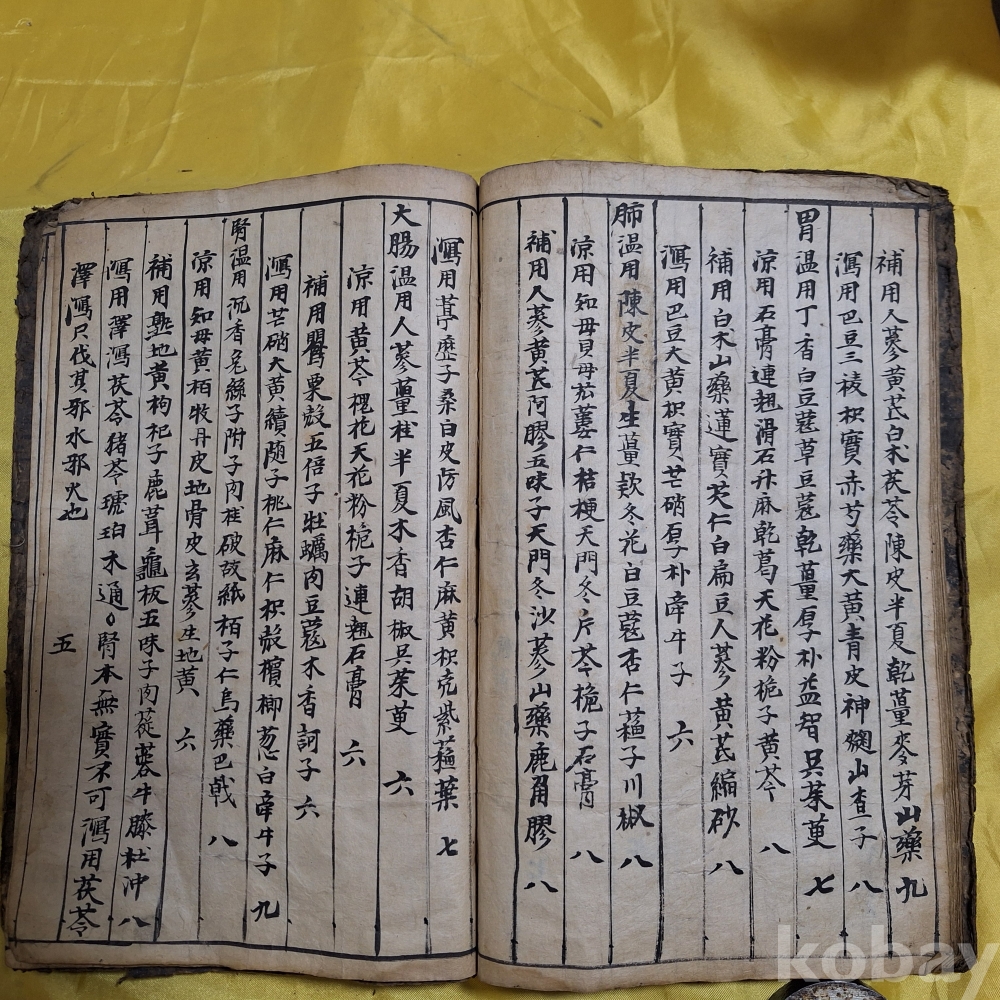 補用人蔘黃芪白朮茯苓陳皮半夏乾薑麥芽山藥 九
瀉用巴豆三稜枳實赤芍藥大黃青皮神麯山査子 八
胃溫用丁香白豆蔻草豆蔻乾薑厚朴益智吳茱萸 七
凉用石膏連翹滑石升麻乾葛天花粉梔子黃芩 八
補用白朮山藥蓮實芡仁白扁豆人蔘黃芪縮砂 八
瀉用巴豆大黃枳實芒硝厚朴牽牛子 六
肺溫用陳皮半夏生薑款冬花白豆蔻杏仁蘓子川椒 八
凉用知母貝母苽蔞仁桔梗天門冬片芩梔子石膏 八
補用人蔘黃芪阿膠五味子天門冬沙蔘山藥鹿角膠 八
瀉用葶歷子桑白皮防風杏仁麻黃枳壳紫蘓葉 七
大腸溫用人蔘薑桂半夏木香胡椒吳茱萸 六
凉用黃芩槐花天花粉梔子連翹石膏 六
補用罌粟殼五倍子牡蠣肉豆蔻木香訶子 六
瀉用芒硝大黃續隨子桃仁麻仁枳殼檳榔葱白牽牛子 九
腎溫用沉香兔絲子附子肉桂破故紙栢子仁烏藥巴戟 八
凉用知母黃栢牧丹皮地骨皮玄蔘生地黃 六
補用熟地黃枸杞子鹿茸龜板五味子肉蓯蓉牛膝杜沖 八
瀉用澤瀉茯苓猪苓琥珀木通。腎本無實不可瀉用茯苓
澤瀉只伐其邪水邪火也
五
kobay